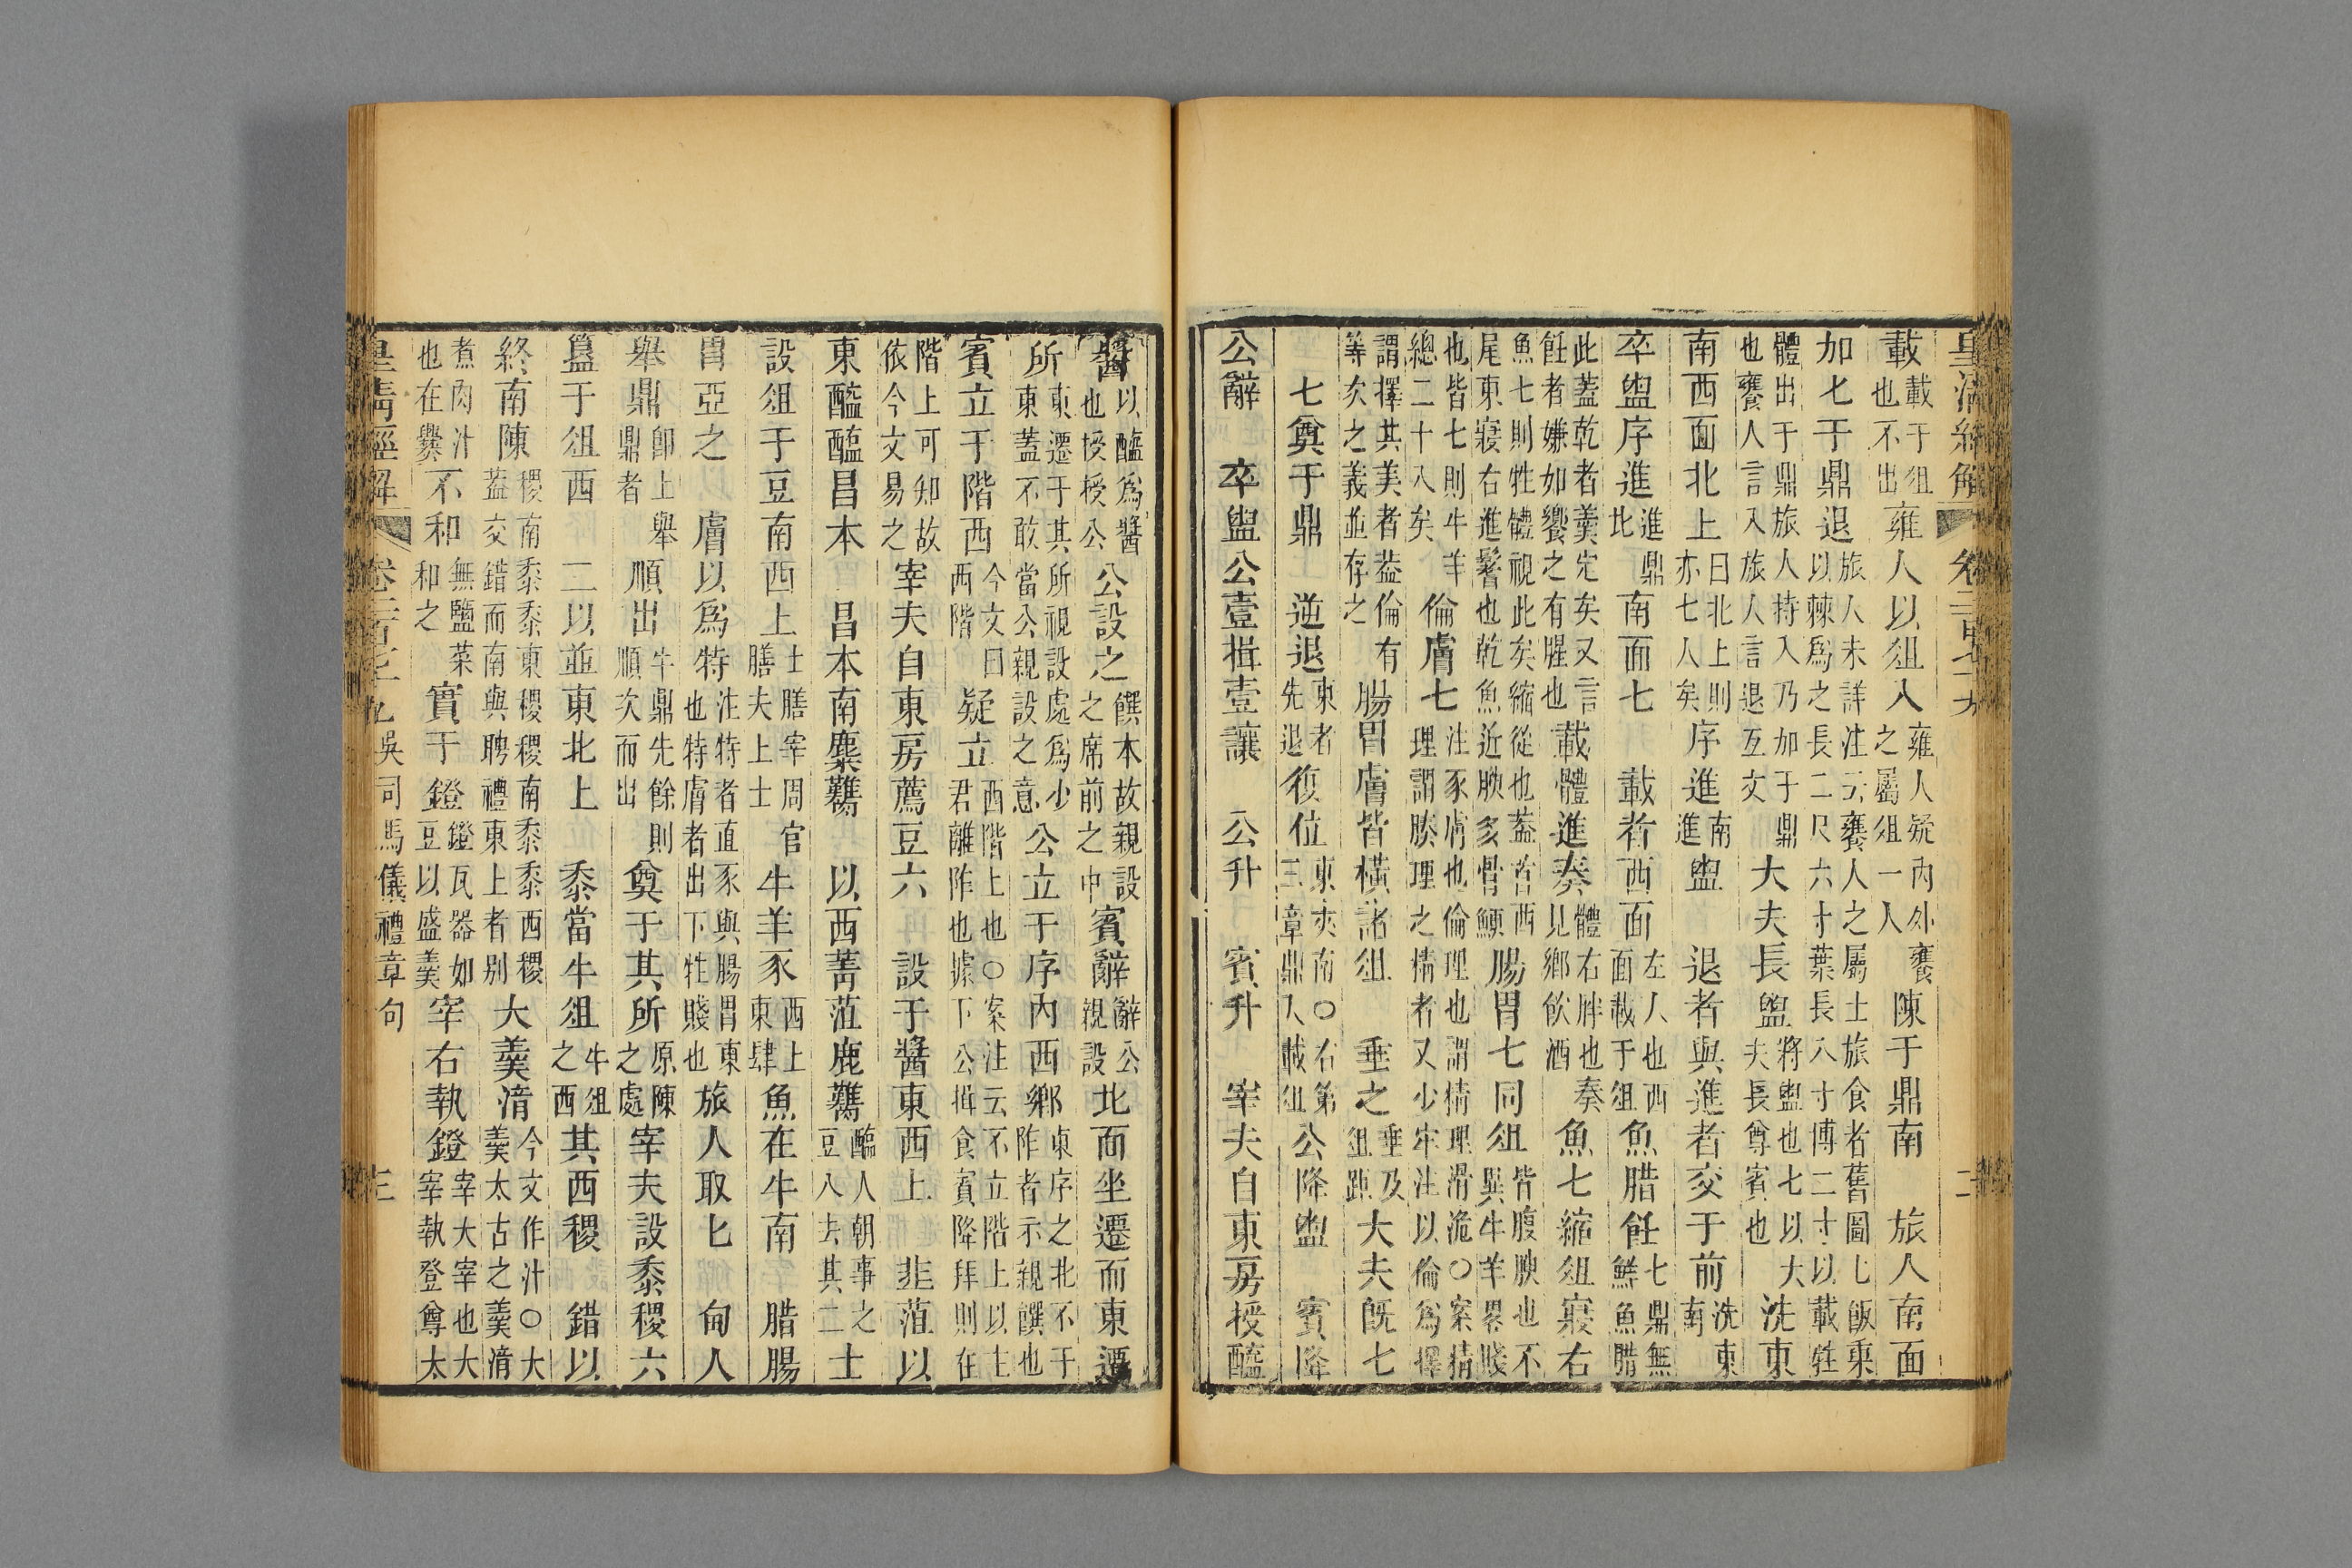 皇清經解 卷二百七十九 二
載載于俎也不出雍人以俎入雍人疑內外饔之屬俎一人陳于鼎南 旅人南面
加匕于鼎退旅人未詳注云饔人之屬士旅食者舊圖匕飯橐以棘為之長二尺六寸葉長八寸博二寸以載牲
體出于鼎旅人持入乃加于鼎也饔人言入旅人言退互文大夫長盥將盥也七以大夫長尊賓也洗東
南西面北上曰北上則亦七人矣序進南進盥 退者與進者交于前洗東南
卒盥序進進鼎北南面匕 載者西面左人也西面載于俎魚腊飪七鼎無鮮魚腊
此蓋乾者羹定矣又言飪者嫌如饗之有腥也載體進奏體右胖也奏見鄉飲酒魚七縮俎寢右
魚七則牲體視此矣縮從也蓋首西尾東寢右進鬐也乾魚近腴多骨鯁腸胃七同俎皆腹腴也不異牛羊畧賤
也皆七則牛羊總二十八矣倫膚七注豕膚也倫理也謂精理滑脃○案精理謂腠理之精者又少牢注以倫為擇
謂擇其美者蓋倫有等矣之義並存之腸胃膚皆橫諸俎 垂之垂及俎距大夫既匕
匕奠于鼎 逆退東者先退復位東夾南○右第三章鼎入載俎公降盥 賓降
公辭 卒盥公壹揖壹讓 公升 賓升 宰夫自東房授醯
醬以醯為醬也授授公公設之饌本故親設之席前之中賓辭辭公親設北面坐遷而東遷
所東遷于其所視設處為少東蓋不敢當公親設之意公立于序內西鄉東序之北不于阼者示親饌也
賓立于階西今文曰西階疑立西階上也○案注云不立階上以主君離阼也據下公揖食賓降拜則在
階上可知故依今文易之宰夫自東房薦豆六 設于醬東西上 韭菹以
東醯醢昌本 昌本南麋臡 以西菁菹鹿臡醢人朝事之豆八去其二士
設俎于豆南西上士膳宰周官膳夫上士牛羊豕西上東肆魚在牛南 腊腸
胃亞之 膚以為特注特者直豕與腸胃東也特膚者出下牲賤也旅人取匕 甸人
舉鼎卽上舉鼎者順出牛鼎先餘則順次而出奠于其所原陳之處宰夫設黍稷六
簋于俎西 二以並東北上 黍當牛俎牛俎之西其西稷 錯以
終南陳稷南黍黍東稷稷南黍黍西稷蓋交錯而南與聘禮東上者别大羹湆今文作汁○大羹太古之羹湆
煮肉汁也在爨不和無鹽菜和之實于鐙鐙瓦器如豆以盛羹宰右執鐙宰大宰也大宰執登尊太
皇清經解 卷二百七十九 吳司馬儀禮章句 三